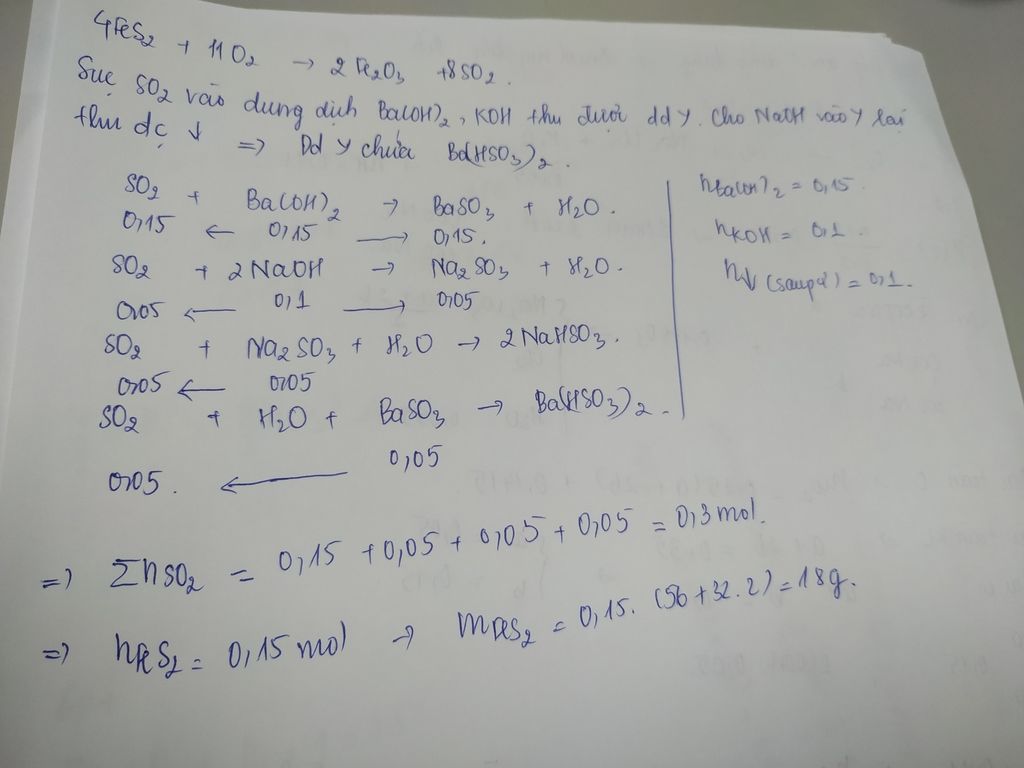 4FeS2 + 11O2 → 2Fe2O3 + 8SO2.
Sục SO2 vào dung dịch Ba(OH)2, KOH thu được dd Y. Cho NaOH vào Y lại
thu đc ↓ => Dd Y chứa Ba(HSO3)2.
SO2 + Ba(OH)2 → BaSO3 + H2O.
0,15 ← 0,15 → 0,15.
SO2 + 2NaOH → Na2SO3 + H2O.
0,05 ← 0,1 → 0,05
SO2 + Na2SO3 + H2O → 2NaHSO3.
0,05 ← 0,05
SO2 + H2O + BaSO3 → Ba(HSO3)2.
0,05. ← 0,05
nBa(OH)2 = 0,15.
nKOH = 0,1.
n↓ (sau pứ) = 0,1.
=> ΣnSO2 = 0,15 + 0,05 + 0,05 + 0,05 = 0,3 mol.
=> nFeS2 = 0,15 mol → mFeS2 = 0,15. (56 + 32. 2) = 18g.